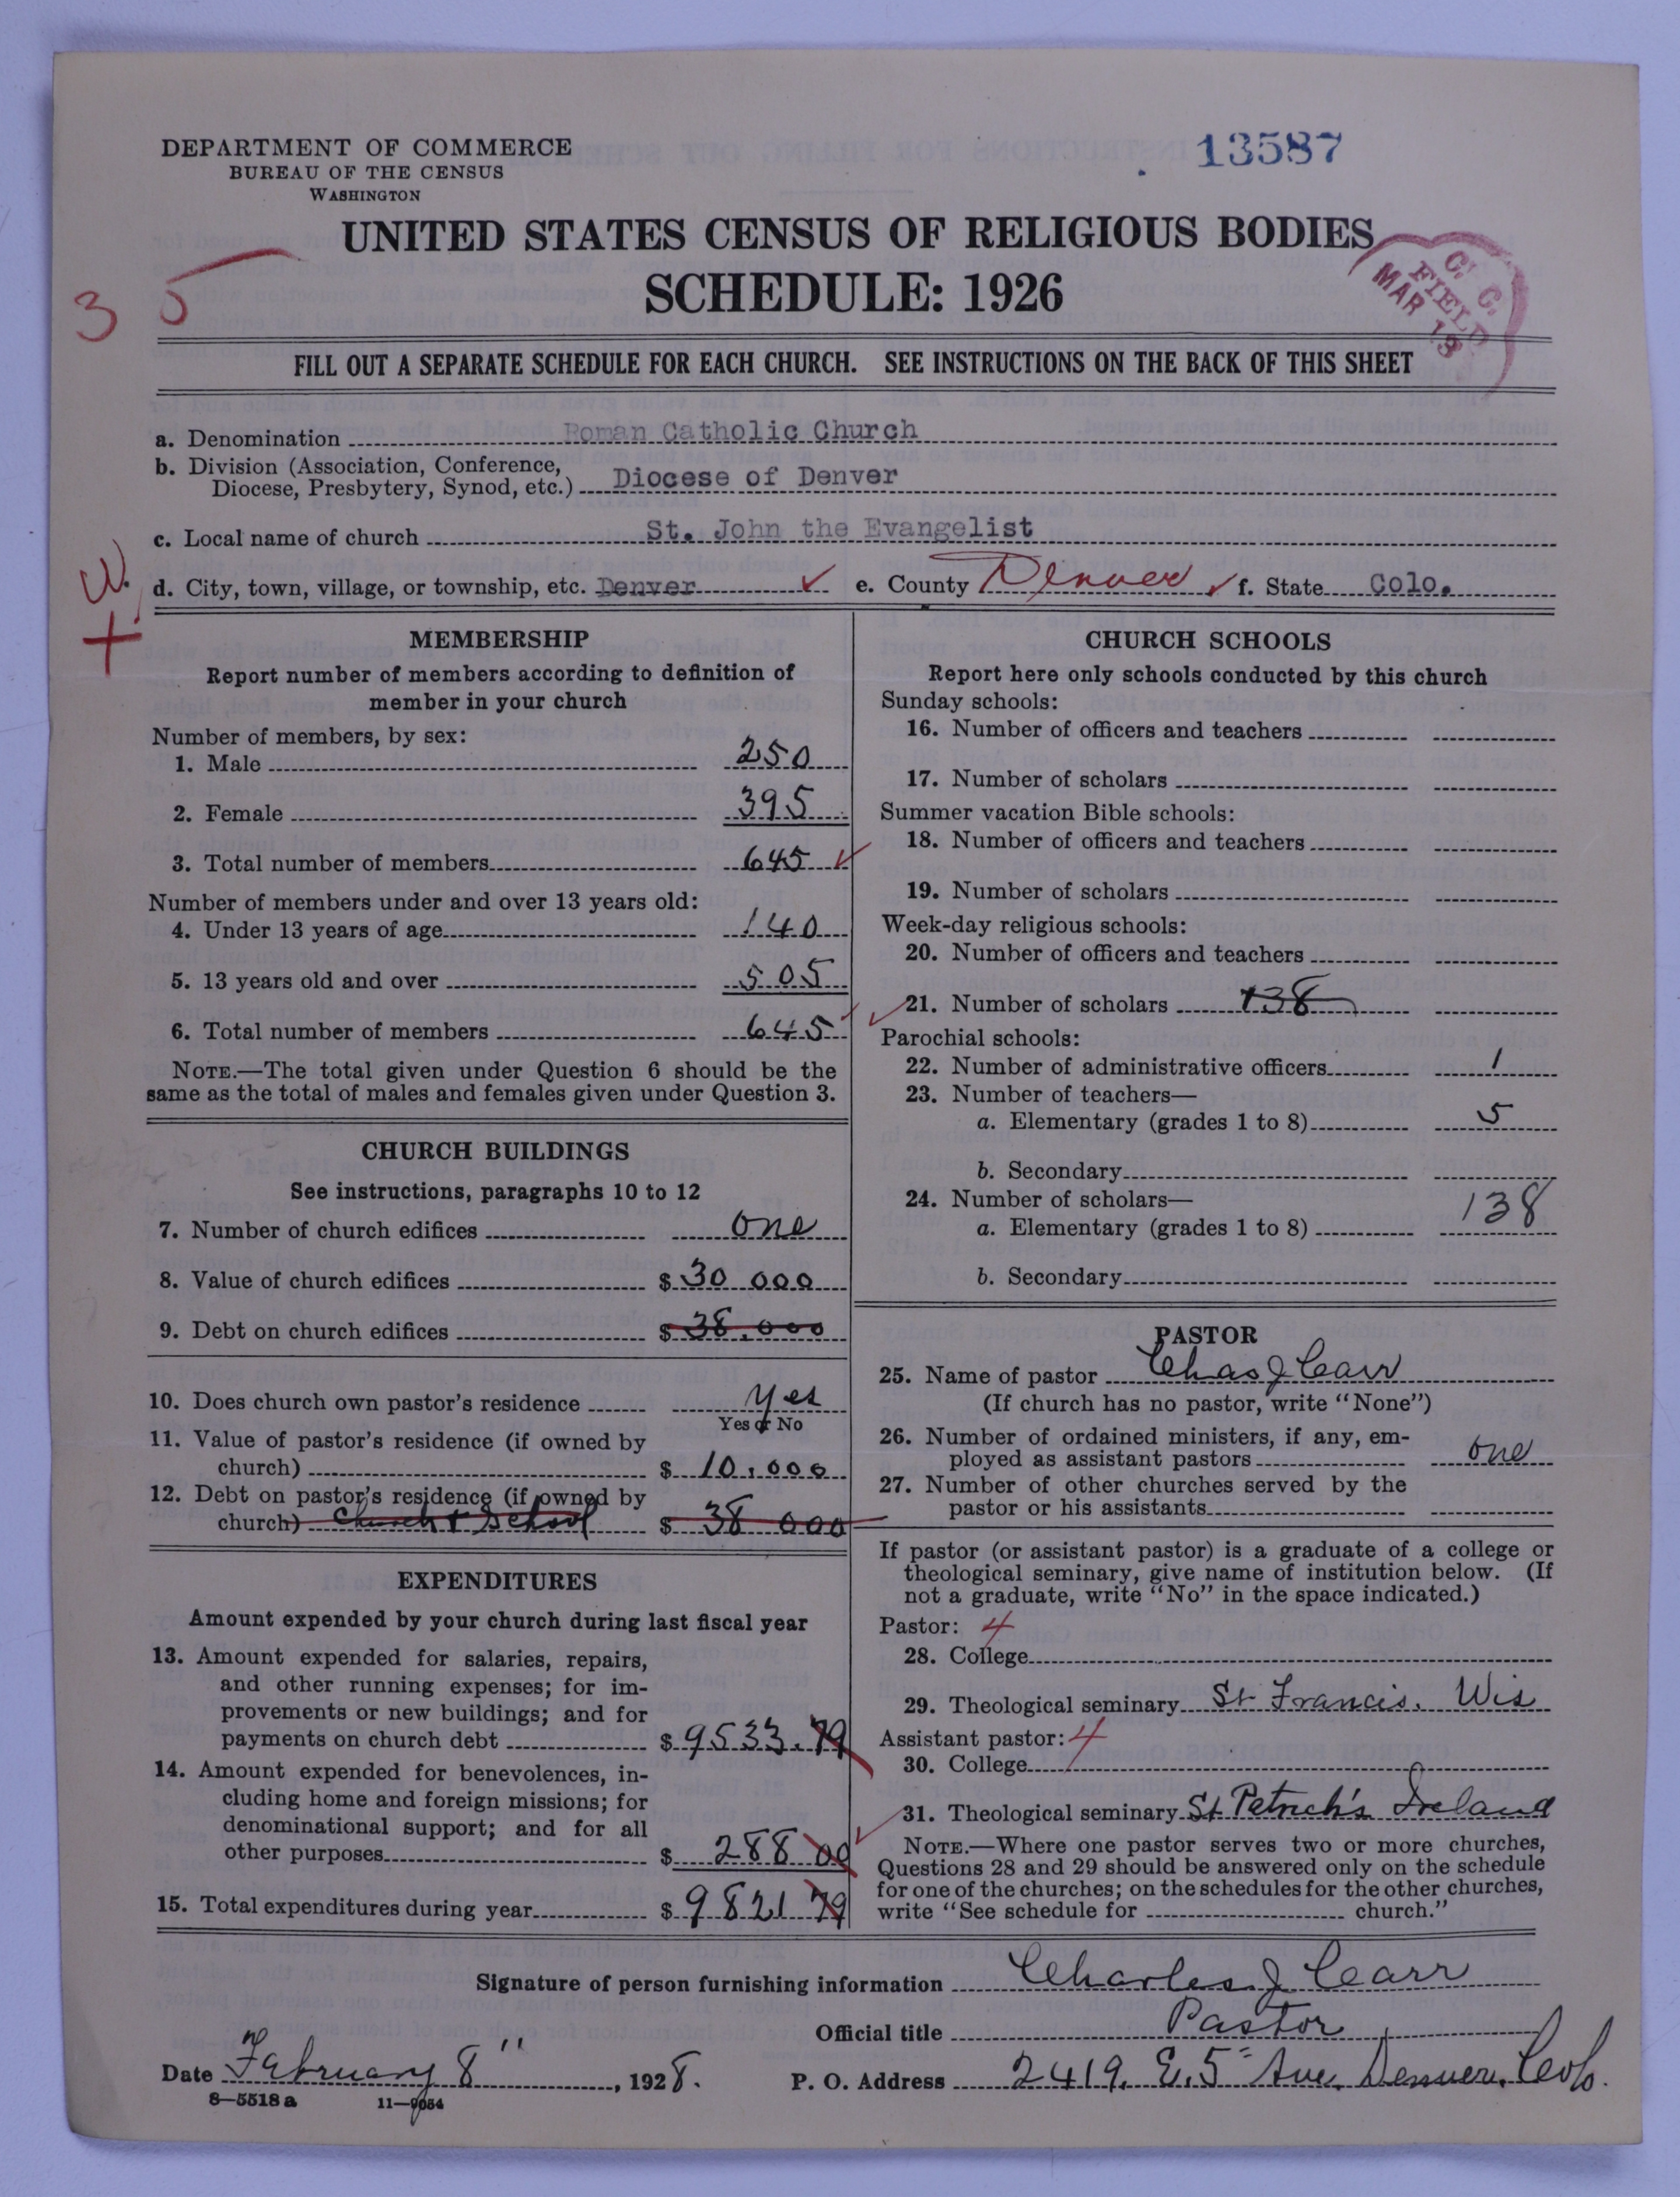 13587
DEPARTMENT OF COMMERCE
BUREAU OF THE CENSUS
WASHINGTON
UNITED STATES CENSUS OF RELIGIOUS BODIES
SCHEDULE: 1926
35
C. C.
FIELD
MAR 19
FILL OUT A SEPARATE SCHEDULE FOR EACH CHURCH. SEE INSTRUCTIONS ON THE BACK OF THIS SHEET
a. Denomination Roman Catholic Church
b. Division (Association, Conference,
Diocese, Presbytery, Synod, etc.) Diocese of Denver
c. Local name of church St. John the Evangelist
W.
d. City, town, village, or township, etc. Denver ✓ e. County Denver ✓ f. State Colo.
+
MEMBERSHIP
Report number of members according to definition of
member in your church
Number of members, by sex:
1. Male 250
2. Female 395
3. Total number of members 645 ✓
Number of members under and over 13 years old:
4. Under 13 years of age 140
5. 13 years old and over 505
6. Total number of members 645 ✓
NOTE.—The total given under Question 6 should be the
same as the total of males and females given under Question 3.
CHURCH BUILDINGS
See instructions, paragraphs 10 to 12
7. Number of church edifices one
8. Value of church edifices $ 30 000
9. Debt on church edifices $ 38.000
10. Does church own pastor's residence yes
Yes or No
11. Value of pastor's residence (if owned by
church) $ 10.000
12. Debt on pastor's residence (if owned by
church) Church & School $ 38 000
EXPENDITURES
Amount expended by your church during last fiscal year
13. Amount expended for salaries, repairs,
and other running expenses; for im-
provements or new buildings; and for
payments on church debt $ 9533.79
14. Amount expended for benevolences, in-
cluding home and foreign missions; for
denominational support; and for all
other purposes $ 288 00
15. Total expenditures during year $ 9821 79
CHURCH SCHOOLS
Report here only schools conducted by this church
Sunday schools:
16. Number of officers and teachers
17. Number of scholars
Summer vacation Bible schools:
18. Number of officers and teachers
19. Number of scholars
Week-day religious schools:
20. Number of officers and teachers
✓ 21. Number of scholars 138
Parochial schools:
22. Number of administrative officers 1
23. Number of teachers—
a. Elementary (grades 1 to 8) 5
b. Secondary
24. Number of scholars—
a. Elementary (grades 1 to 8) 138
b. Secondary
PASTOR
25. Name of pastor Chas J Carr
(If church has no pastor, write "None")
26. Number of ordained ministers, if any, em-
ployed as assistant pastors one
27. Number of other churches served by the
pastor or his assistants
If pastor (or assistant pastor) is a graduate of a college or
theological seminary, give name of institution below. (If
not a graduate, write "No" in the space indicated.)
Pastor: 4
28. College
29. Theological seminary St Francis. Wis
Assistant pastor: 4
30. College
✓ 31. Theological seminary St Patrick's Ireland
NOTE.—Where one pastor serves two or more churches,
Questions 28 and 29 should be answered only on the schedule
for one of the churches; on the schedules for the other churches,
write "See schedule for church."
Signature of person furnishing information Charles J Carr
Official title Pastor
Date February 8", 1928. P. O. Address 2419. E. 5" Ave. Denver. Colo.
8—5518 a 11—9054